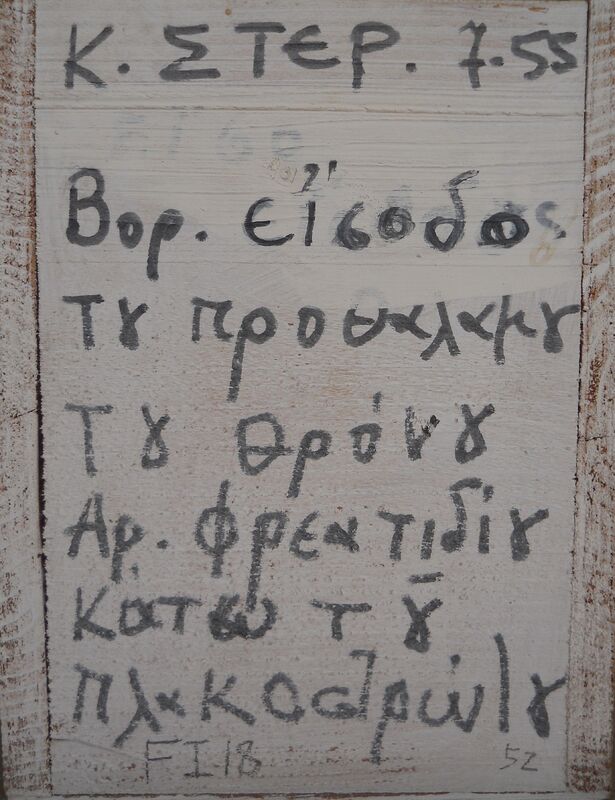 Κ. ΣΤΕΡ. 7.55
Βορ. εἴσοδος
Τȣ προθαλαμȣ
Τȣ θρόνȣ
Αρ. φρεατιδίȣ
Κάτω τȣ͂
πλακοστρώτȣ
FI18 52